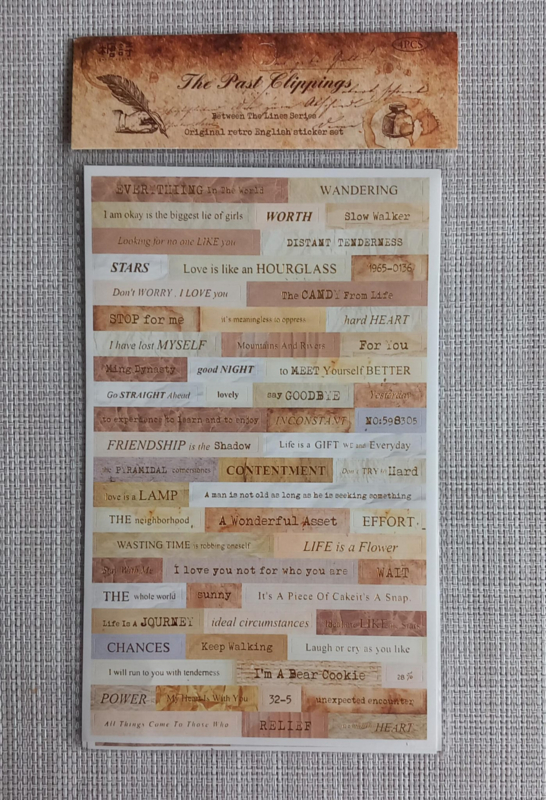 4PCS
The Past Clippings
Between The Lines Series
Original retro English sticker set
EVERYTHIING In the World WANDERING
I am okay is the biggest lie of girls WORTH Slow Walker
Looking for no one LIKE you DISTANT TENDERNESS
STARS Love is like an HOURGLASS 1965-0136
Don't WORRY . I LOVE you The CANDY From Life
STOP for me it's meaningless to oppress hard HEART
I have lost MYSELF Mountains And Rivers For You
Ming Dynasty good NIGHT to MEET Yourself BETTER
Go STRAIGHT Ahead lovely say GOODBYE Yesterday
to experience to learn and to enjoy INCONSTANT NO:598305
FRIENDSHIP is the Shadow Life is a GIFT WE and Everyday
the PYRAMIDAL cornerstones CONTENTMENT Don't TRY So Hard
love is a LAMP A man is not old as long as he is seeking something
THE neighborhood A Wonderful Asset EFFORT
WASTING TIME is robbing oneself LIFE is a Flower
Stay With Me I love you not for who you are WAIT
THE whole world sunny It's A Piece Of Cakeit's A Snap.
Life Is A JOURNEY ideal circumstances Ideal is LIKE the Star
CHANCES Keep Walking Laugh or cry as you like
I will run to you with tenderness I'm A Bear Cookie 20%
POWER My Heart Is With You 32-5 unexpected encounter
All Things Come To Those Who RELIEF HEART